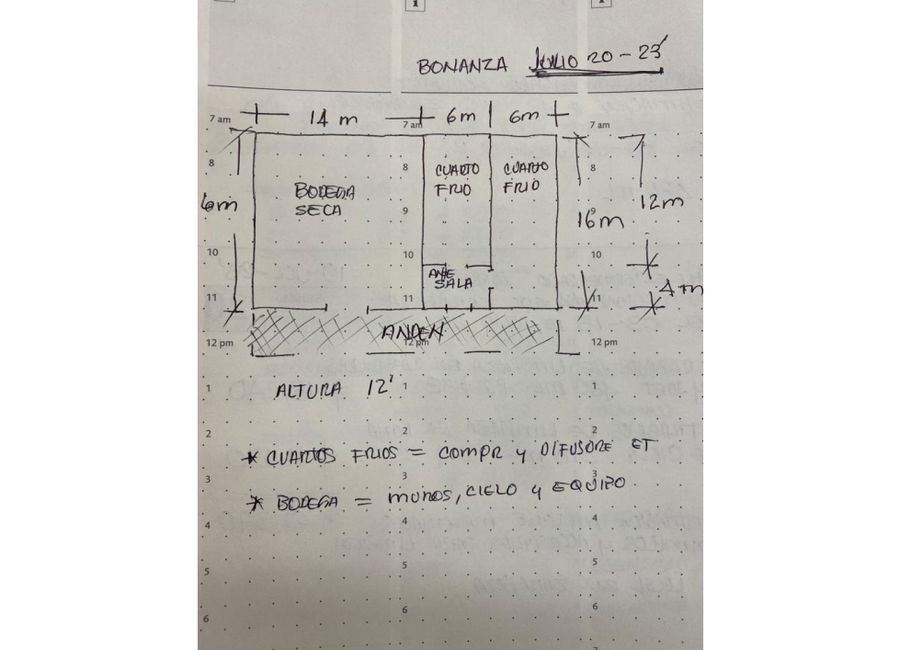 BONANZA JULIO 20-23
7 am 14 m 7 am 6m 6m 7 am
8 8 8
BODEGA
SECA
CUARTO
FRIO
CUARTO
FRIO
6m
9
16m
12m
10 10 10
ANTE
SALA
11 11 11
4m
12 pm ANDEN 12 pm 12 pm
1 ALTURA 12' 1 1
2 2 2
* CUARTOS FRIOS = COMPR y DIFUSORE ET
3 3 3
* BODEGA = MUROS, CIELO y EQUIPO.
4 4 4
5 5 5
6 6 6